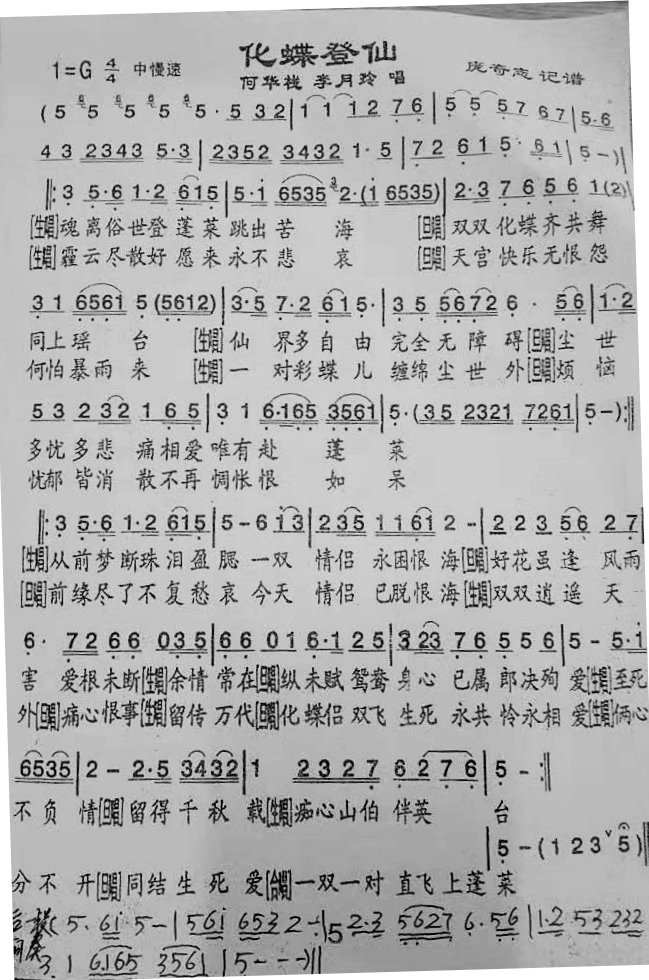 化蝶登仙
1=G 4/4 中慢速 何华栈 李月玲 唱 庞奇志 记谱
(5 5 5 5 5· 5 32|1 1 12 76|5 5 57 67|5·6
43 2343 5·3|2352 3432 1·5|72 61 5· 61|5 -)|
‖:3 5·6 1·2 615|5·1 6535 2·(1 6535)|2·3 76 56 1(2)|
[生唱]魂离俗世登蓬莱跳出苦海 [旦唱]双双化蝶齐共舞
[生唱]霾云尽散好愿来永不悲哀 [旦唱]天宫快乐无恨怨
31 6561 5 (5612)|3·5 7·2 61 5·|35 5672 6· 56|1·2
同上瑶台 [生唱]仙界多自由完全无障碍[旦唱]尘世
何怕暴雨来 [生唱]一对彩蝶儿缠绵尘世外[旦唱]烦恼
53 232 165|31 6·165 3561|5·(35 2321 7261|5-):‖
多忧多悲痛相爱唯有赴蓬莱
忧郁皆消散不再惆怅恨如呆
‖:3 5·6 1·2 615|5-6 13|235 1161 2-|223 56 27|
[生唱]从前梦断珠泪盈腮一双情侣永困恨海[旦唱]好花虽逢风雨
[旦唱]前缘尽了不复愁哀今天情侣已脱恨海[生唱]双双逍遥天
6· 72 66 035|66 01 6·1 25|323 76 556|5-5·1
害 爱根未断[生唱]余情常在[旦唱]纵未赋鸳鸯身心已属郎决殉爱[生唱]至死
外[旦唱]痛心恨事[生唱]留传万代[旦唱]化蝶侣双飞生死永共怜永相爱[生唱]俩心
6535|2-2·5 3432|1 2327 6276|5-:‖
不负情[旦唱]留得千秋载[生唱]痴心山伯伴英台
5-(123ˇ5)‖
分不开[旦唱]同结生死爱[合唱]一双一对直飞上蓬莱
(5· 61 5-|561 653 2-|5 2·3 5627 6·56|1·2 53 232
3·1 6165 3561|5---)‖